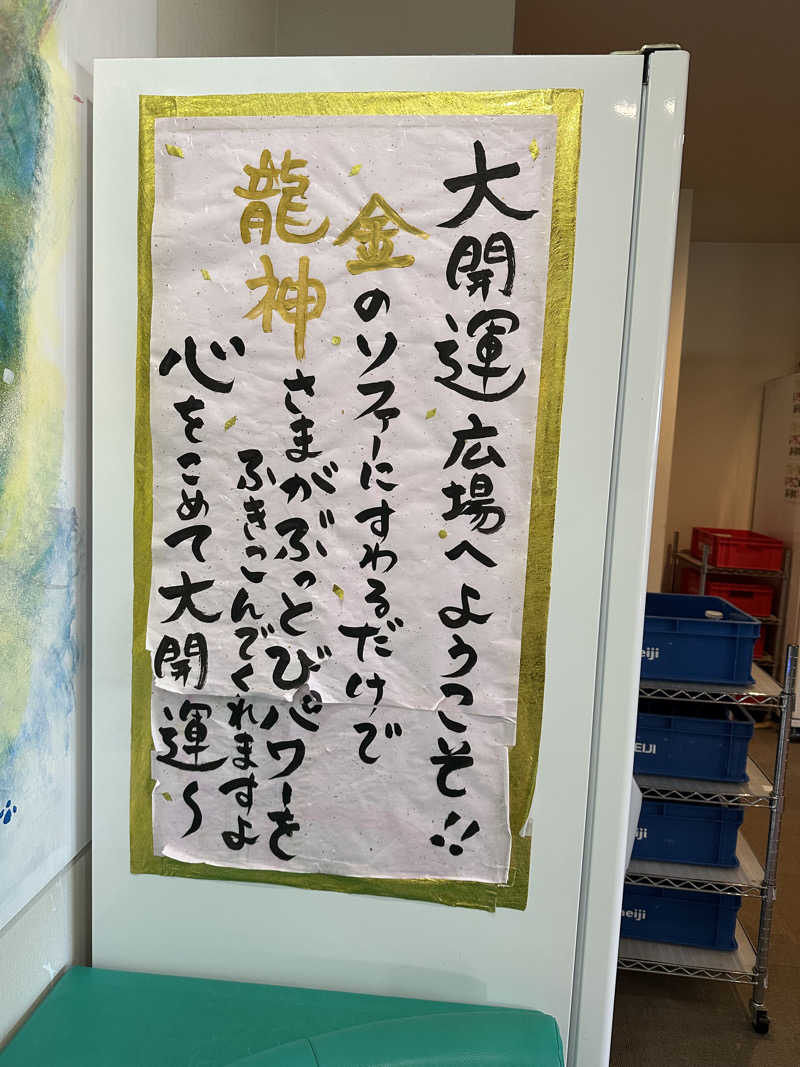 大開運広場へようこそ!!
金のソファーにすわるだけで
龍神さまがぶっとびパワーを
ふきこんでくれますよ
心をこめて大開運〜
eiji
EIJI
eiji
neiji